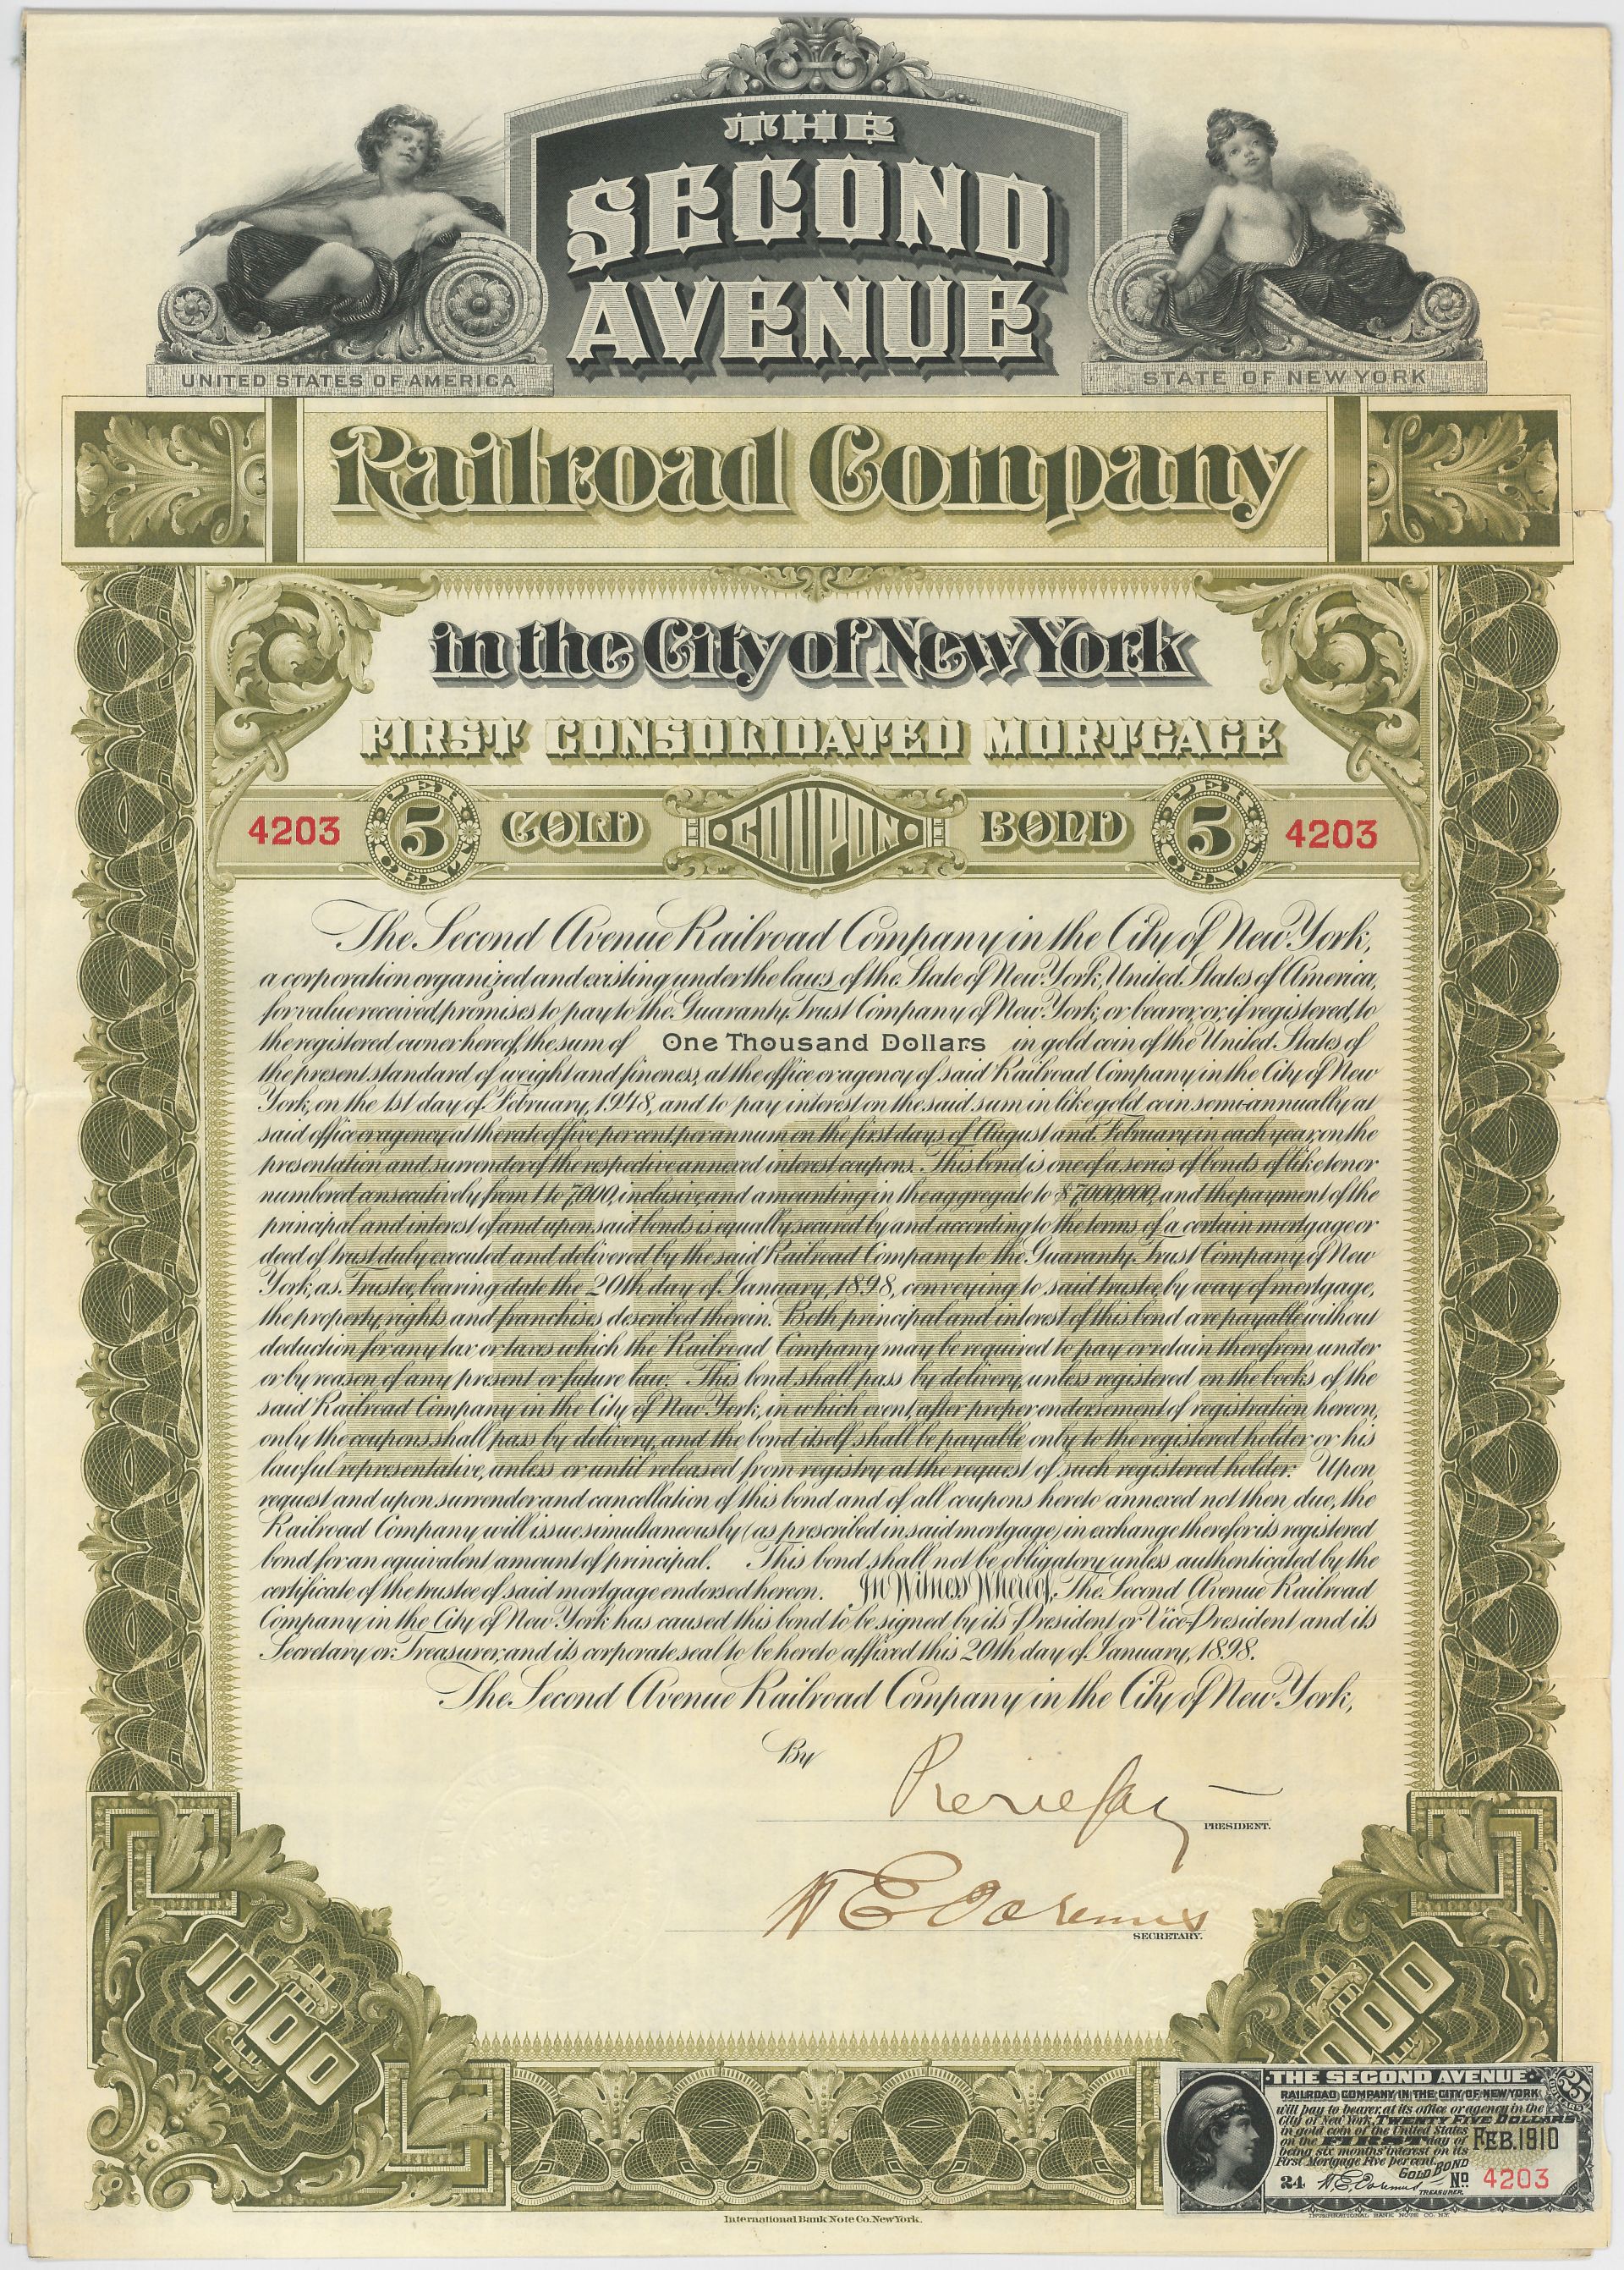 THE
SECOND
AVENUE
UNITED STATES OF AMERICA
STATE OF NEW YORK
Railroad Company
in the City of New York
FIRST CONSOLIDATED MORTGAGE
4203 5 PER CENT GOLD COUPON BOND 5 PER CENT 4203
The Second Avenue Railroad Company in the City of New York,
a corporation organized and existing under the laws of the State of New York, United States of America,
for value received, promises to pay to the Guaranty Trust Company of New York, or bearer, or, if registered, to
the registered owner hereof, the sum of One Thousand Dollars in gold coin of the United States of
the present standard of weight and fineness, at the office or agency of said Railroad Company in the City of New
York, on the 1st day of February, 1948, and to pay interest on the said sum in like gold coin semi-annually at
said office or agency at the rate of five per cent. per annum on the first days of August and February in each year, on the
presentation and surrender of the respective annexed interest coupons. This bond is one of a series of bonds of like tenor
numbered consecutively from 1 to 7,000, inclusive, and amounting in the aggregate to $7,000,000, and the payment of the
principal and interest of and upon said bonds is equally secured by and according to the terms of a certain mortgage or
deed of trust duly executed and delivered by the said Railroad Company to the Guaranty Trust Company of New
York, as Trustee, bearing date the 20th day of January, 1898, conveying to said trustee, by way of mortgage,
the property, rights and franchises described therein. Both principal and interest of this bond are payable without
deduction for any tax or taxes which the Railroad Company may be required to pay or retain therefrom under
or by reason of any present or future law. This bond shall pass by delivery, unless registered on the books of the
said Railroad Company in the City of New York, in which event, after proper endorsement of registration hereon,
only the coupons shall pass by delivery, and the bond itself shall be payable only to the registered holder or his
lawful representative, unless or until released from registry at the request of such registered holder. Upon
request and upon surrender and cancellation of this bond and of all coupons hereto annexed not then due, the
Railroad Company will issue simultaneously (as prescribed in said mortgage) in exchange therefor its registered
bond for an equivalent amount of principal. This bond shall not be obligatory unless authenticated by the
certificate of the trustee of said mortgage endorsed hereon. In Witness Whereof, The Second Avenue Railroad
Company in the City of New York has caused this bond to be signed by its President or Vice-President and its
Secretary or Treasurer, and its corporate seal to be hereto affixed this 20th day of January, 1898.
The Second Avenue Railroad Company in the City of New York,
By
PRESIDENT.
W E Doremus
SECRETARY.
1000
THE SECOND AVENUE
RAILROAD COMPANY IN THE CITY OF NEW YORK
will pay to bearer, at its office or agency in the
City of New York, TWENTY FIVE DOLLARS
in gold coin of the United States
on the FIRST day of FEB. 1910
being six months' interest on its
First Mortgage Five per cent.
GOLD BOND
24 W. E. Doremus No. 4203
TREASURER.
25
International Bank Note Co. New York.
INTERNATIONAL BANK NOTE CO. N.Y.